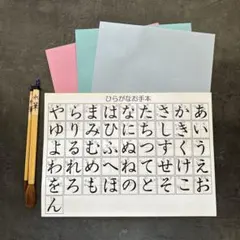 ひらがなお手本
あいうえお
かきくけこ
さしすせそ
たちつてと
なにぬねの
はひふへほ
まみむめも
らりるれろ
やゆよわをん